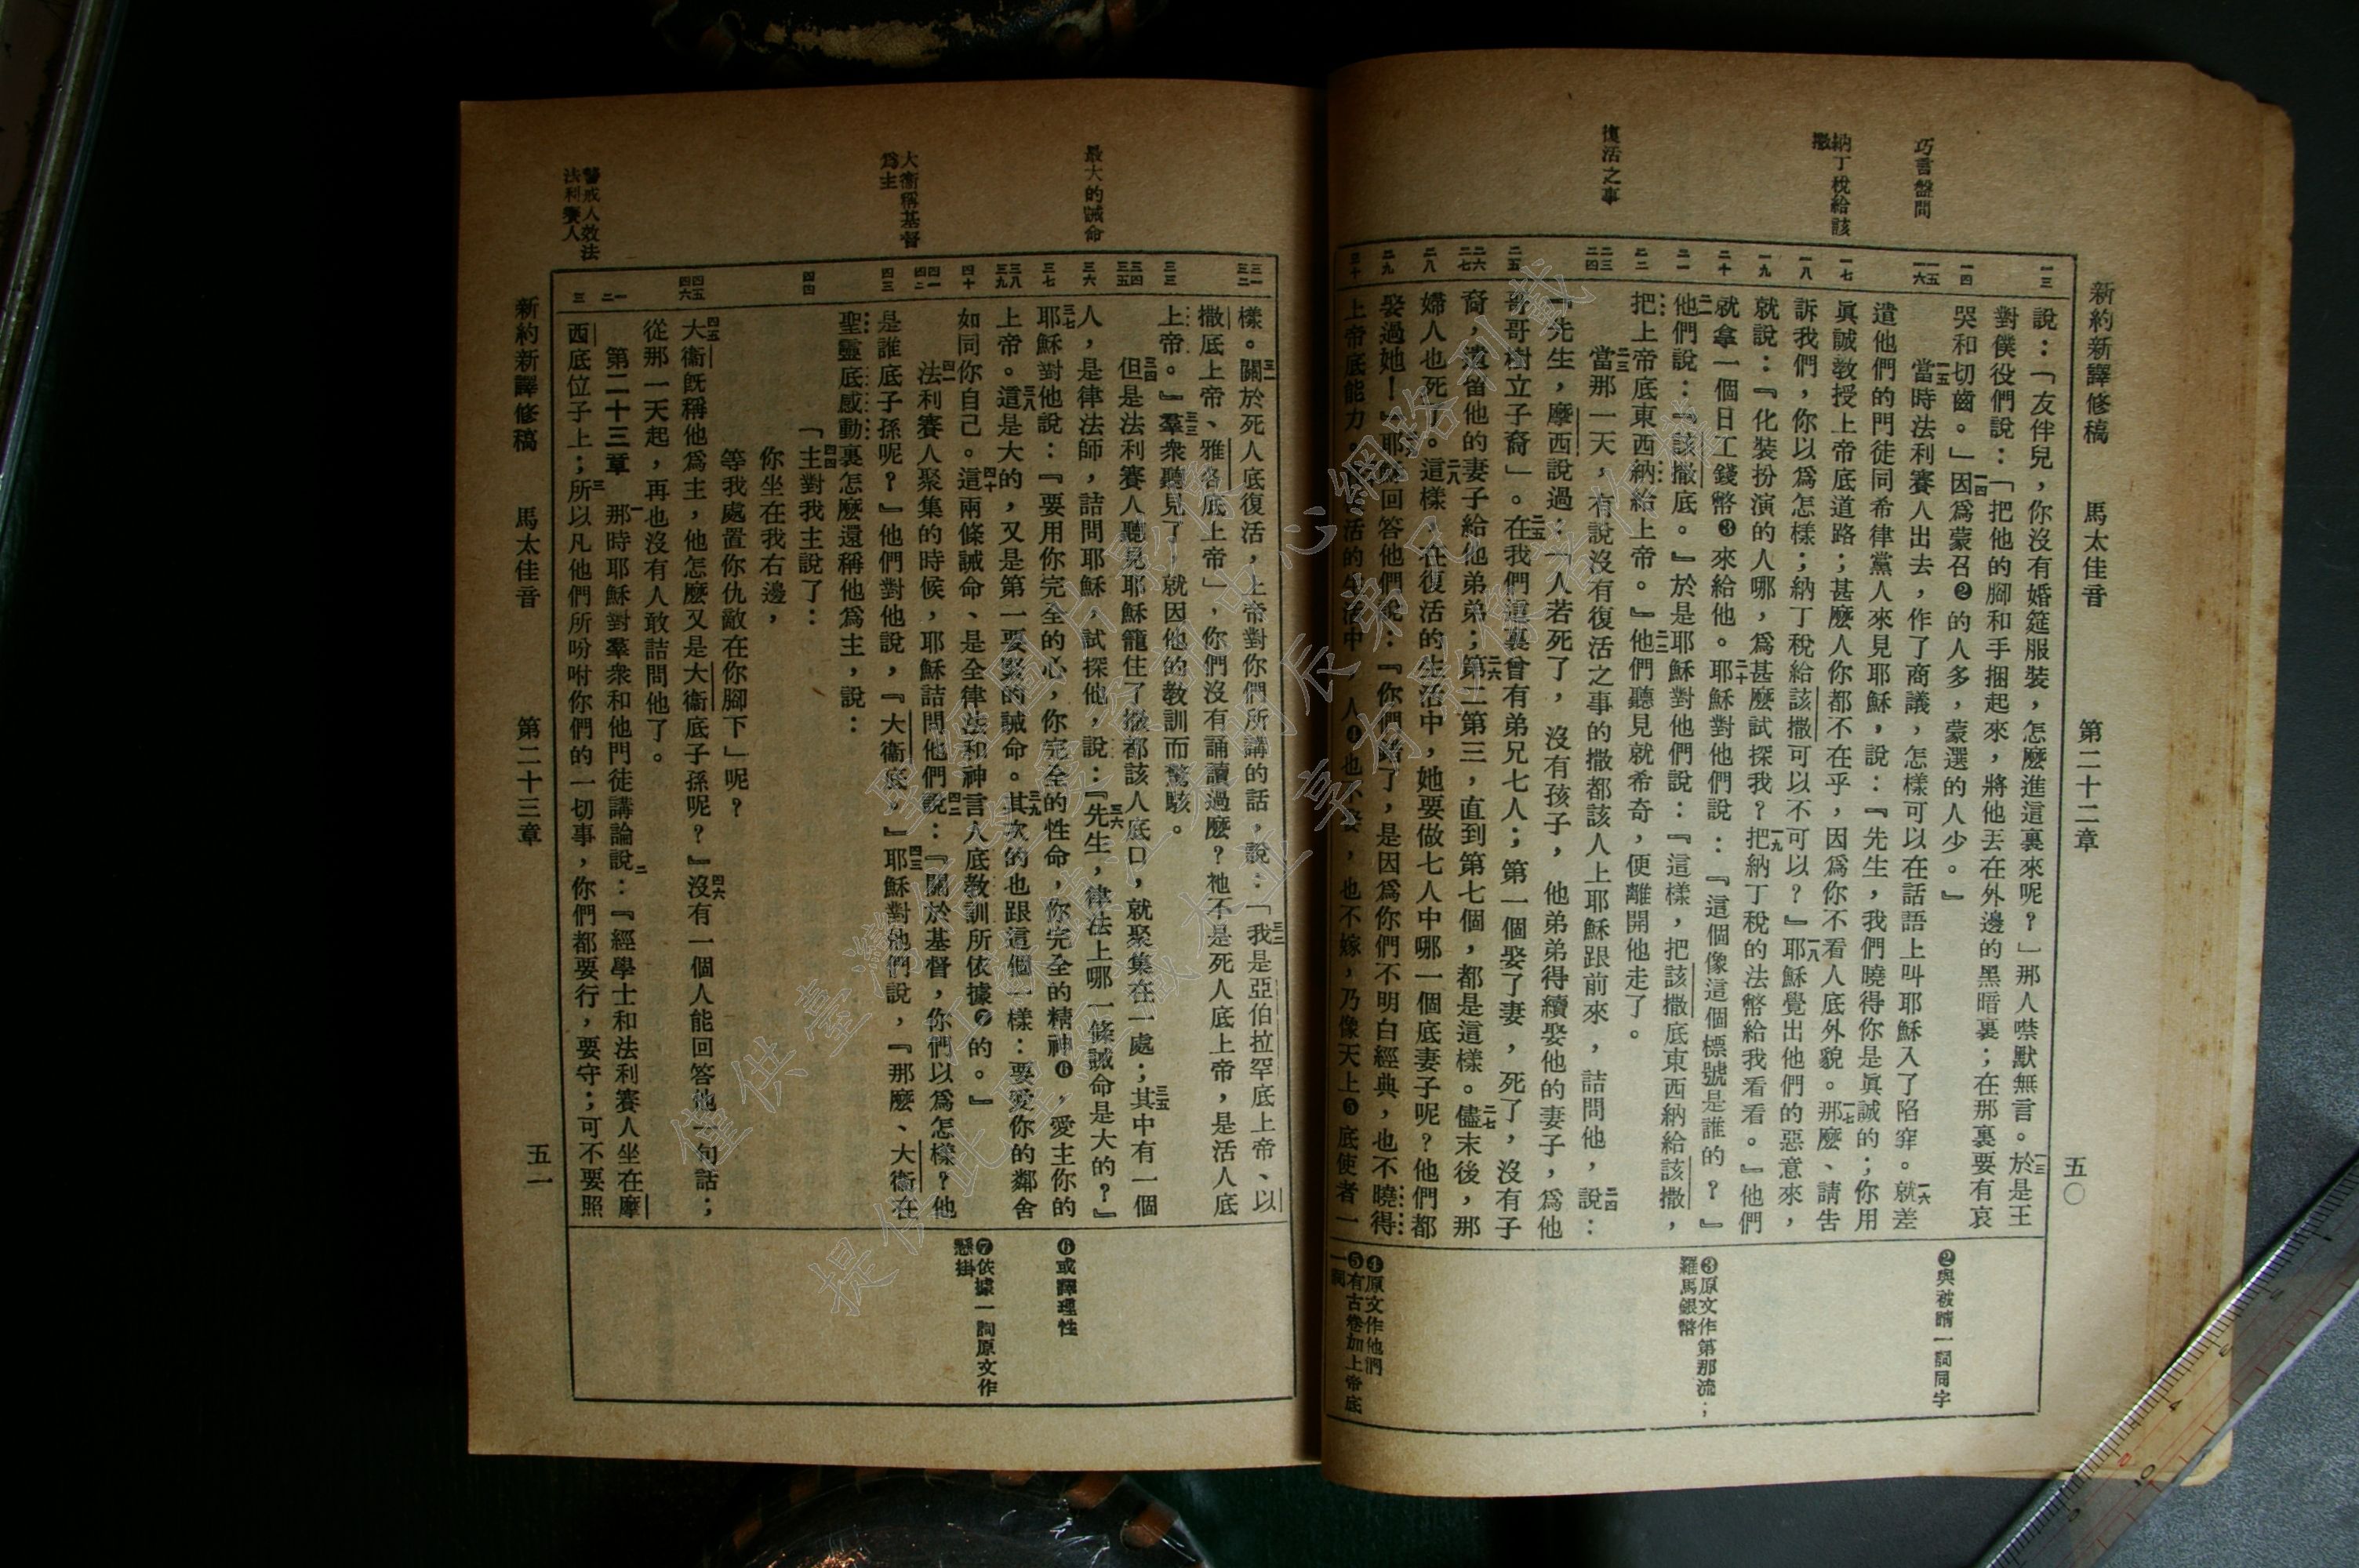 新約新譯修稿 馬太佳音 第二十二章 五〇
巧言盤問
納丁稅給該撒
復活之事
一三 一四 一五 一六 一七 一八 一九 二十 二一 二二 二三 二四 二五 二六 二七 二八 二九 三十
說：「友伴兒，你沒有婚筵服裝，怎麼進這裏來呢？」那人噤默無言。一三於是王
對僕役們說：「把他的腳和手捆起來，將他丟在外邊的黑暗裏；在那裏要有哀
哭和切齒。」一四因爲蒙召❷的人多，蒙選的人少。』
一五當時法利賽人出去，作了商議，怎樣可以在話語上叫耶穌入了陷穽。一六就差
遣他們的門徒同希律黨人來見耶穌，說：『先生，我們曉得你是眞誠的；你用
眞誠教授上帝底道路；甚麼人你都不在乎，因爲你不看人底外貌。一七那麼、請告
訴我們，你以爲怎樣；納丁稅給該撒可以不可以？』一八耶穌覺出他們的惡意來，
就說：『化裝扮演的人哪，爲甚麼試探我？一九把納丁稅的法幣給我看看。』他們
就拿一個日工錢幣❸來給他。二十耶穌對他們說：『這個像這個標號是誰的？』
二一他們說：『該撒底。』於是耶穌對他們說：『這樣，把該撒底東西納給該撒，
把上帝底東西納給上帝。』二二他們聽見就希奇，便離開他走了。
二三當那一天，有說沒有復活之事的撒都該人上耶穌跟前來，詰問他，二四說：
『先生，摩西說過：「人若死了，沒有孩子，他弟弟得續娶他的妻子，爲他
哥哥樹立子裔」。二五在我們這裏曾有弟兄七人；第一個娶了妻，死了，沒有子
裔，遺留他的妻子給他弟弟；二六第二第三，直到第七個，都是這樣。二七儘末後，那
婦人也死了。二八這樣、在復活的生活中，她要做七人中哪一個底妻子呢？他們都
娶過她！』二九耶穌回答他們說：『你們錯了，是因爲你們不明白經典，也不曉得
上帝底能力。三十復活的生活中，人❹也不娶，也不嫁，乃像天上❺底使者一
❷與被請一詞同字
❸原文作第那流；羅馬銀幣
❹原文作他們
❺有古卷加上帝底一詞
最大的誡命
大衞稱基督爲主
警戒人效法法利賽人
三一 三二 三三 三四 三五 三六 三七 三八 三九 四十 四一 四二 四三 四四 四五 四六 一 二 三
樣。三一關於死人底復活，上帝對你們所講的話，說：三二「我是亞伯拉罕底上帝、以
撒底上帝、雅各底上帝」，你們沒有誦讀過麼？祂不是死人底上帝，是活人底
上帝。』三三羣衆聽見了，就因他的教訓而驚駭。
三四但是法利賽人聽見耶穌籠住了撒都該人底口，就聚集在一處；三五其中有一個
人，是律法師，詰問耶穌，試探他，說：三六『先生，律法上哪一條誡命是大的？』
三七耶穌對他說：『要用你完全的心，你完全的性命，你完全的精神❻，愛主你的
上帝。三八這是大的，又是第一要緊的誡命。三九其次的也跟這個一樣：要愛你的鄰舍
如同你自己。四十這兩條誡命、是全律法和神言人底教訓所依據❼的。』
四一法利賽人聚集的時候，耶穌詰問他們說：四二『關於基督，你們以爲怎樣？他
是誰底子孫呢？』他們對他說，『大衞底。』四三耶穌對他們說，『那麼、大衞在
聖靈底感動裏怎麼還稱他爲主，說：
四四「主對我主說了：
你坐在我右邊，
等我處置你仇敵在你腳下」呢？
四五大衞旣稱他爲主，他怎麼又是大衞底子孫呢？』四六沒有一個人能回答他一句話；
從那一天起，再也沒有人敢詰問他了。
第二十三章 一那時耶穌對羣衆和他門徒講論說：二『經學士和法利賽人坐在摩
西底位子上；三所以凡他們所吩咐你們的一切事，你們都要行，要守；可不要照
❻或譯理性
❼依據一詞原文作懸掛
新約新譯修稿 馬太佳音 第二十三章 五一